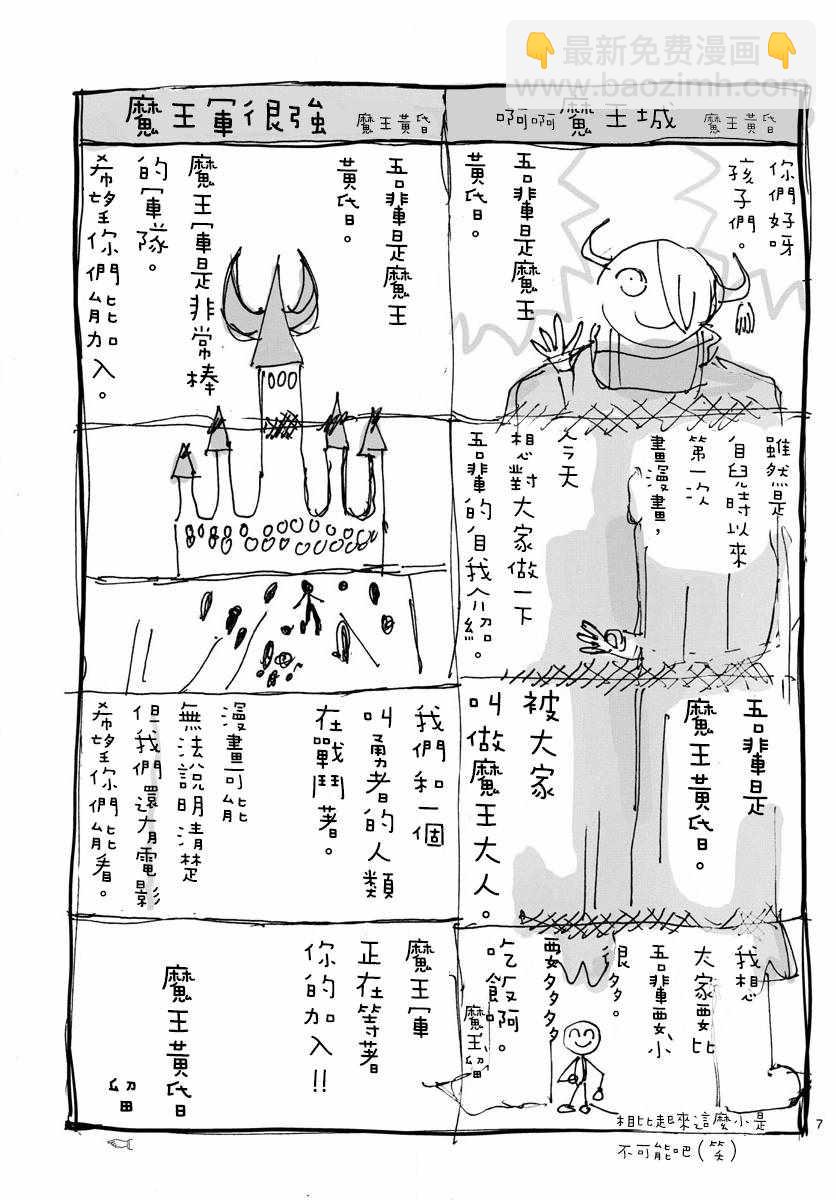 👇最新免费漫画👇
www.baozimh.com
啊啊魔王城 魔王黃昏
你們好呀
孩子們。
吾輩是魔王
黃昏。
雖然是
自兒時以來
第一次
畫漫畫，
今天
想對大家做一下
吾輩的自我介紹。
吾輩是
魔王黃昏。
被大家
叫做魔王大人。
我想
大家要比
吾輩要小
很多。
要多多多多
吃飯啊。
魔王留
相比起來這麼小是
不可能吧(笑)
魔王軍很強 魔王黃昏
吾輩是魔王
黃昏。
魔王軍是非常棒
的軍隊。
希望你們能加入。
我們和一個
叫勇者的人類
在戰鬥著。
漫畫可能
無法說明清楚
但我們還有電影
希望你們能看。
魔王軍
正在等著
你的加入!!
魔王黃昏
留
7